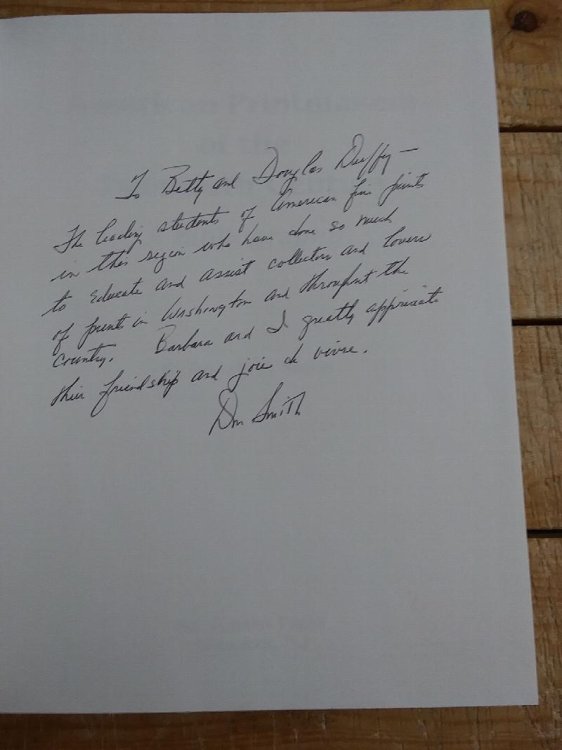 To Betty and Douglas Duffy —
The leading students of American fine prints
in this region who have done so much
to educate and assist collectors and lovers
of prints in Washington and throughout the
country. Barbara and I greatly appreciate
their friendship and joie de vivre.
Don Smith